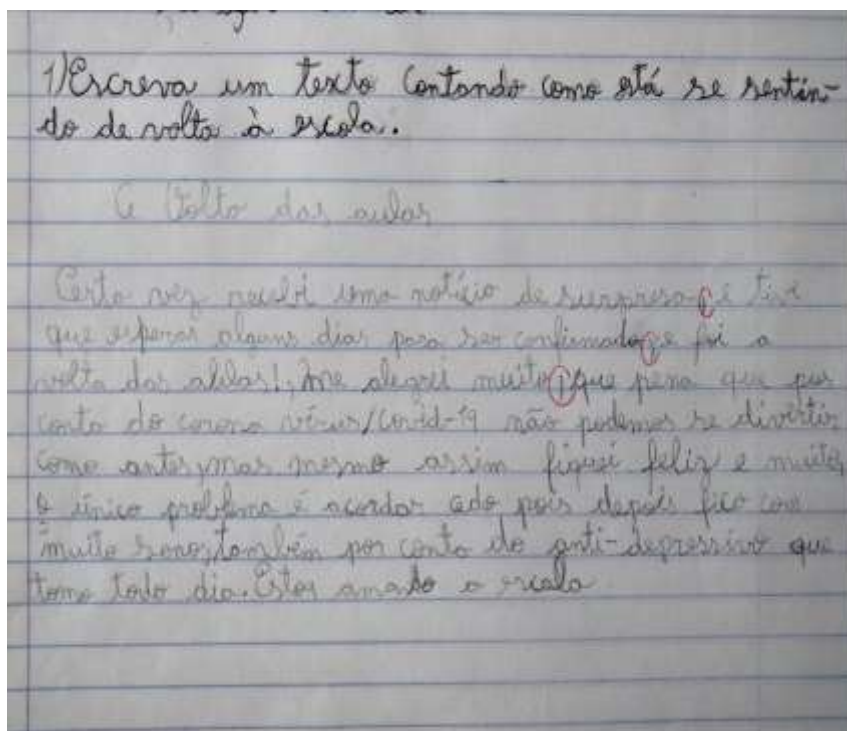 1) Escreva um texto contando como está se sentin-
do de volta à escola.
A Volta das aulas
Certa vez recebi uma notícia de surpresa, e tive
que esperar alguns dias para ser confirmado, e foi a
volta das aulas!, me alegrei muito, que pena que por
conta do corona vírus/Covid-19 não podemos se divertir
como antes, mas mesmo assim fiquei feliz e muito,
o único problema é acordar cedo pois depois fico com
muito sono, também por conta do anti-depressivo que
tomo todo dia. Estou amado a escola